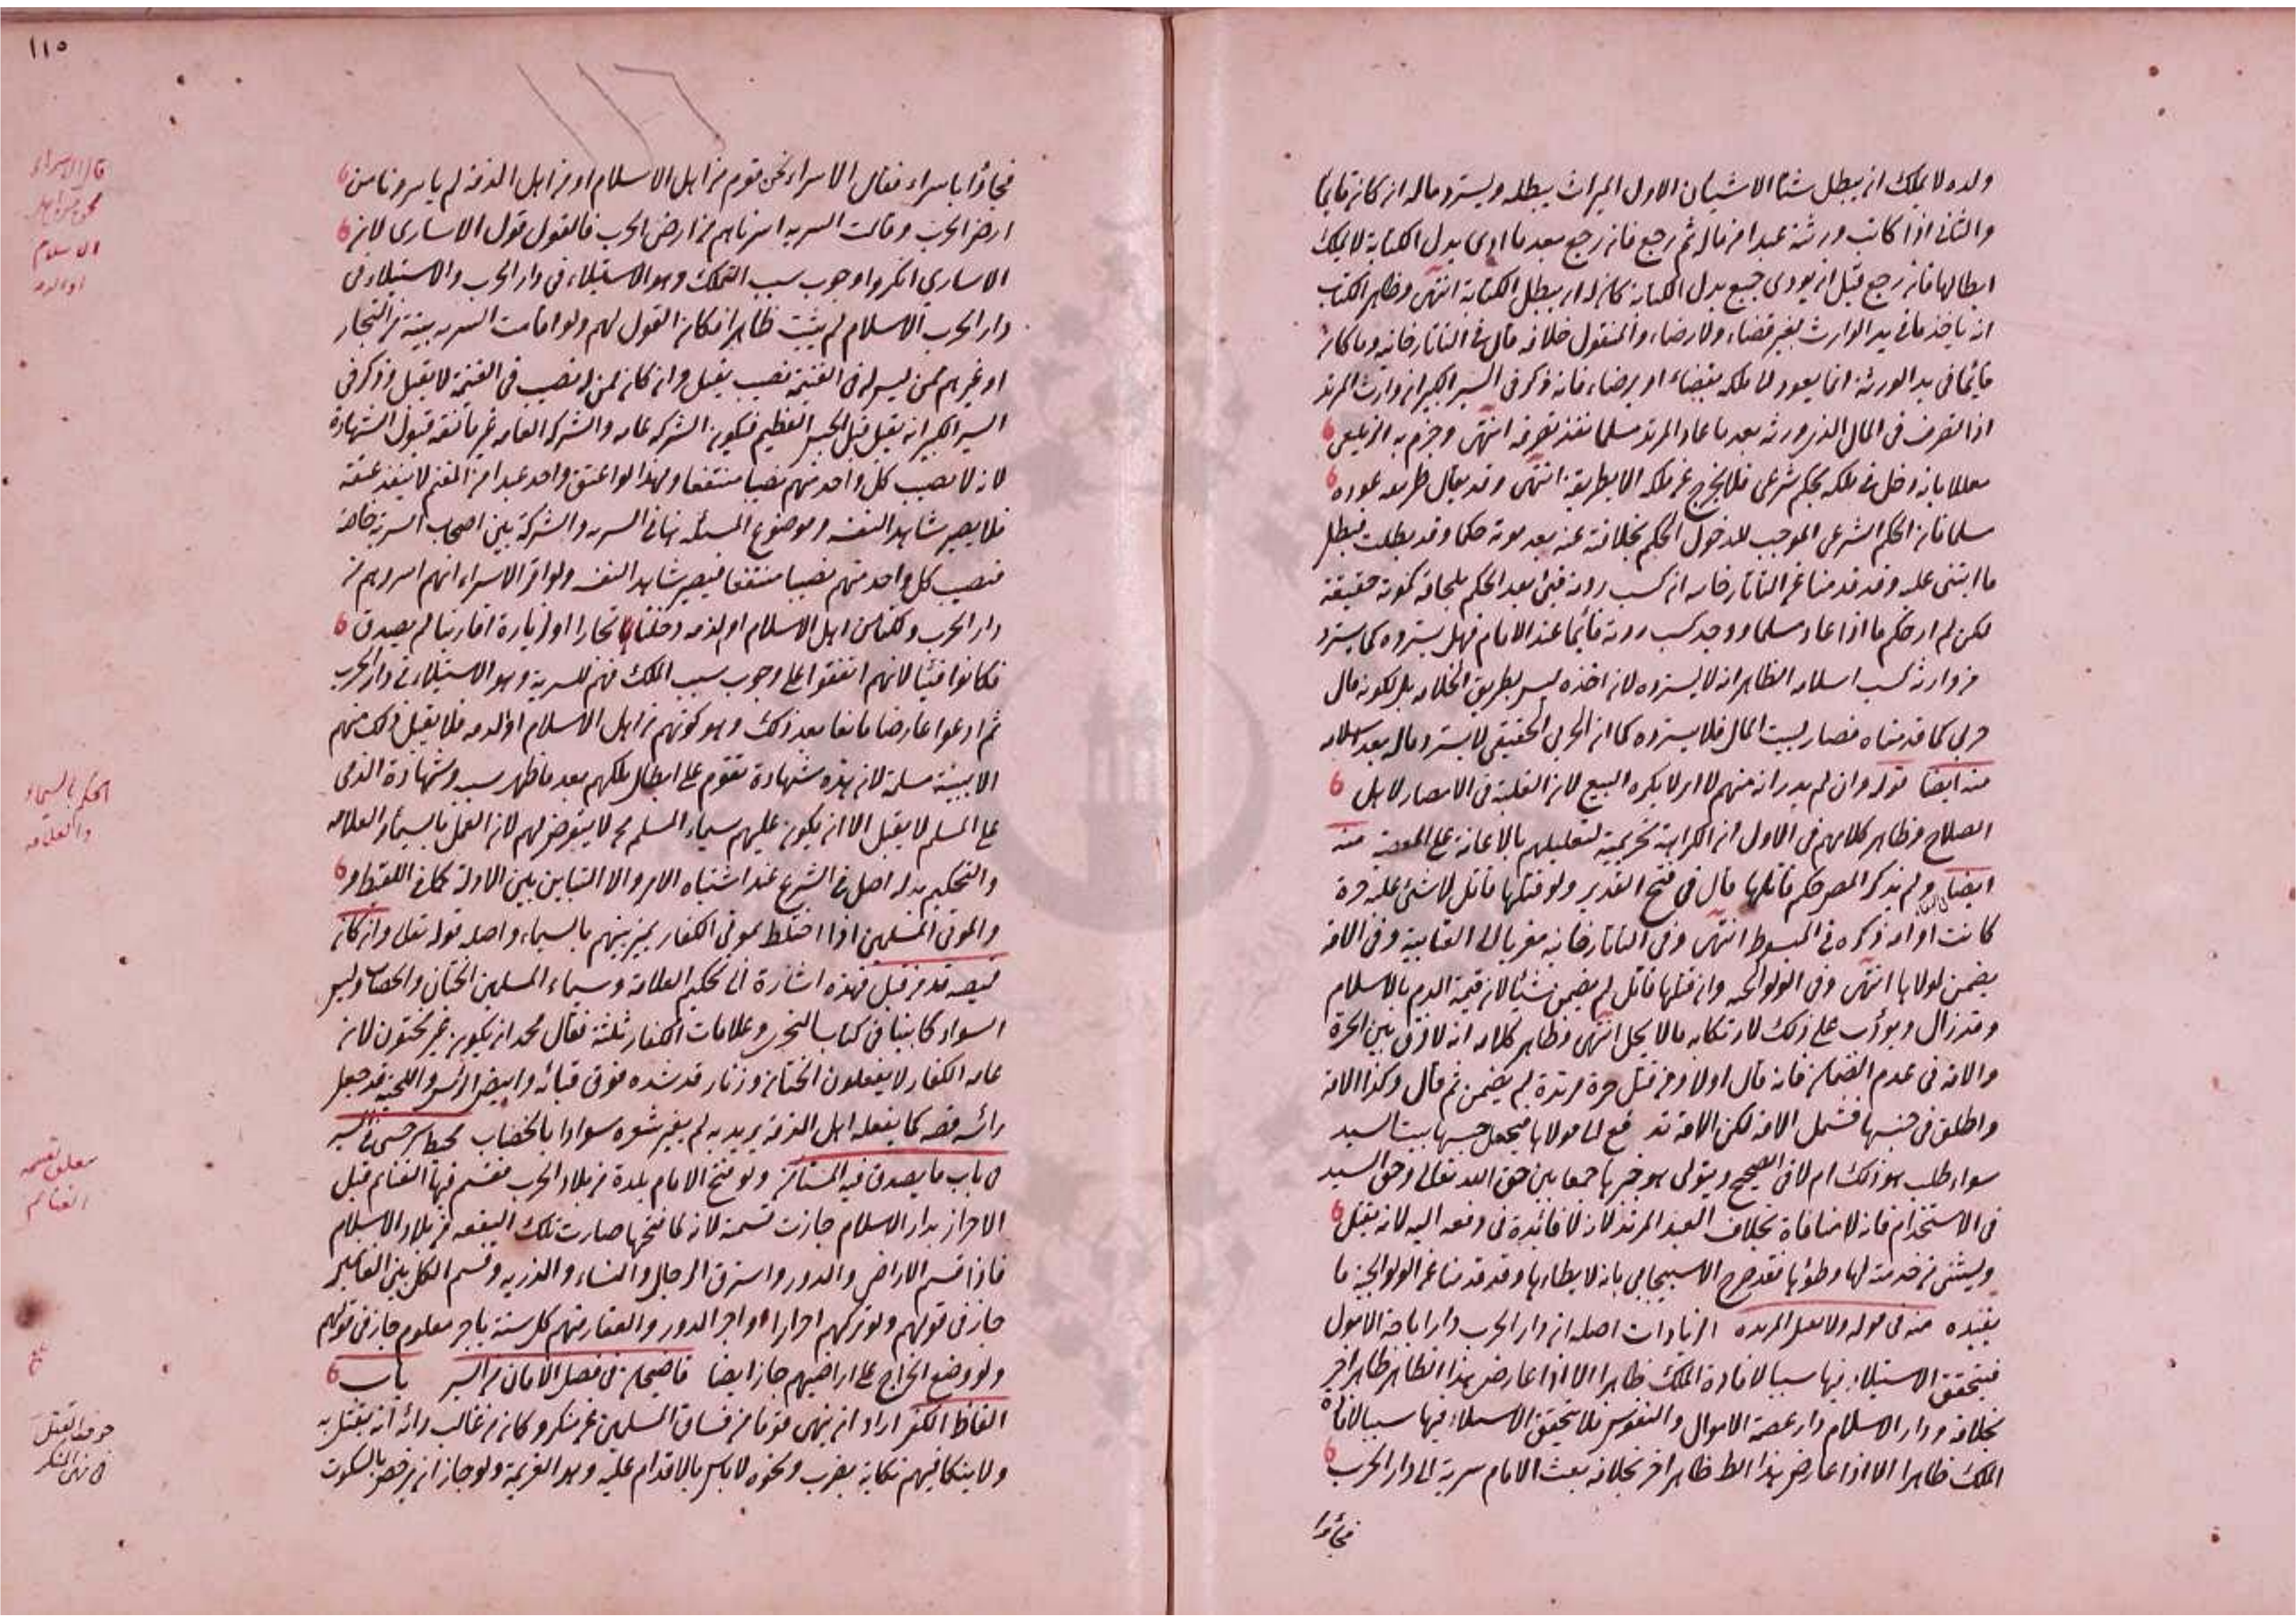 ولده لا يملك ان يبطل شيئا الا شيئان الاول الميراث يبطله ويسترد ماله ان كان قائما
والثاني اذا كاتب ورثته عبدا من ماله ثم رجع فان رجع بعد ما ادى بدل الكتابة لا يملك
ابطالها فان رجع قبل ان يودى جميع بدل الكتابة كان له ان يبطل الكتابة انتهى وظاهر الكتاب
انه ياخذ ما في يد الوارث بغير قضاء ولا رضاء والمنقول خلافه قال في التاتارخانيه وما كان
قائما في يد الورثة انما يعود الى ملكه بقضاء او برضاء فانه ذكر في السير الكبير ان وارث المرتد
اذا تصرف في المال الذي ورثه بعد ما عاد المرتد مسلما نفذ تصرفه انتهى وجزم به الزيلعي
معللا بانه دخل في ملكه بحكم شرعي فلا يخرج عن ملكه الا بطريقه انتهى وقد يقال طريقه عوده
مسلما فان الحكم الشرعي الموجب للدخول الحكم بخلافته عنه بعد موته حكما وقد بطلت فبطل
ما ابتنى عليه وقد قدمنا عن التاتارخانيه ان كسب ردته فيئ بعد الحكم بلحاقه كموته حقيقة
لكن لم ار حكم ما اذا عاد مسلما ووجد كسب ردته قائما عند الامام فهل يسترده كما يسترد
من وارثه كسب اسلامه الظاهر انه لا يسترده لان اخذه ليس بطريق الخلافه بل لكونه مال
حربي كما قدمناه فصار لبيت المال فلا يسترده كما ان الحربي الحقيقي لا يسترد ماله بعد اسلامه
منه ايضا قوله وان لم يدر انه منهم لا اى لا يكره البيع لان الغلبة في الامصار لاهل
الصلاح وظاهر كلامهم في الاول ان الكراهة تحريمية لتعليلهم بالاعانة على المعصية منه
ايضا ولم يذكر المص حكم قاتلها قال في فتح القدير ولو قتلها قاتل لا شئ عليه حرة
كانت او امه ذكره في المبسوط انتهى وفي التاتارخانيه معزيا الى العتابية وفي الامة
يضمن لمولاها انتهى وفي الولوالجيه وان قتلها قاتل لم يضمن شيئا لان قيمة الدم بالاسلام
وقد زال ويؤدب على ذلك لارتكابه ما لا يحل انتهى وظاهر كلامه انه لا فرق بين الحرة
والامة في عدم الضمان فانه قال اولا ومن قتل حرة مرتدة لم يضمن ثم قال وكذا الامة
واطلق في حبسها فشمل الامة لكن الامة تدفع الى مولاها فيجعل حبسها ببيت السيد
سواء طلب هو ذلك ام لا في الصحيح ويتولى هو جبرها جمعا بين حق الله تعالى وحق السيد
في الاستخدام فانه لا منافاة بخلاف العبد المرتد لانه لا فائدة في دفعه اليه لانه يقتل
ويستثنى من خدمته لها وطؤها فقد صرح الاسبيجابي بانه لا يطاءها وقد قدمنا عن الولوالجية ما
يفيده منه في قوله ولا تقتل المرتدة الزيادات اصله ان دار الحرب دار اباحة الاموال
فيتحقق الاستيلاء فيها سببا لافادة الملك ظاهرا الا اذا عارض هذا الظاهر ظاهر اخر
بخلافه ودار الاسلام دار عصمة الاموال والنفوس فلا يتحقق الاستيلاء فيها سببا لافادة
الملك ظاهرا الا اذا عارض هذا الظ ظاهر اخر بخلافه بعث الامام سرية الى دار الحرب
فجاؤا
١١٥
١١٦
فجاؤا باسراء فقال الاسراء نحن قوم من اهل الاسلام او من اهل الذمة لم ياسرونا من
ارض الحرب وقالت السريه اسرناهم من ارض الحرب فالقول قول الاسارى لان
الاسارى انكروا وجوب سبب التملك وهو الاستيلاء في دار الحرب والاستيلاء في
دار الحرب الاسلام لم يثبت ظاهرا فكان القول لهم ولو اقامت السريه بينة من التجار
او غيرهم ممن ليس له في الغنيمة نصيب يقبل وان كان لمن له نصيب في الغنيمة لا يقبل وذكر في
السير الكبير انه يقبل قيل الجيش العظيم فيكون الشركه عامه والشركة العامه غير مانعه قبول الشهادة
لانه لا نصيب كل واحد منهم نصيبا منتفعا ولهذا لو اعتق واحد عبدا من المغنم لا ينفذ عتقه
فلا يصير شاهد النفسه وموضوع المسئله هنا في السريه والشركة بين اصحاب السرية خاصة
فنصيب كل واحد منهم نصيبا منتفعا فيصير شاهد النفسه ولو اقر الاسراء انهم اسروهم من
دار الحرب ولكنا من اهل الاسلام او الذمه دخلناها تجارا او لزيارة اقاربنا لم يصدق
فكانوا فيئا لانهم اتفقوا على وجوب سبب الملك فهم للسرية وهو الاستيلاء في دار الحرب
ثم ادعوا عارضا مانعا بعد ذلك وهو كونهم من اهل الاسلام او الذمه فلا يقبل ذلك منهم
الا ببينة مسلمة لان هذه شهادة تقوم على ابطال ملكهم بعد ما ظهر سببه وشهادة الذمى
على المسلم لا يقبل الا ان يكون عليهم سيماء المسلم فح لا يتعرض لهم لان العمل بالسيماء والعلامه
والتحكيم بدله اصل في الشرع عند اشتباه الامر والا التباين بين الادلة كما في اللقيط و
والموتى المسلمين اذا اختلط بموتى الكفار يميز بينهم بالسيماء واصله قوله تعالى وان كان
قميصه قد من قبل فهذه اشارة الى تحكيم العلامة وسيماء المسلمين الختان والخضاب ولبس
السواد كما بينا في كتاب التحرى وعلامات الكفار ثلثة فقال محمد ان يكون غير مختون لان
عامه الكفار لا يفعلون الختان وزنار قد شده فوق قبائه وابيض الرأس واللحية قد جعل
رائسه قصه كما يفعله اهل الذمة يريد به لم يغير شعره سوادا بالخضاب محيط سرخسى في السير
في باب ما يصدق فيه المستامن ولو فتح الامام بلدة من بلاد الحرب فقسم فيها الغنائم قبل
الاحراز بدار الاسلام جازت قسمته لانه لما فتحها صارت تلك البقعه من بلاد الاسلام
فاذا قسم الاراضى والدور واسترق الرجال والنساء والذريه وقسم الكل بين الغانمين
جاز في قولهم ولو تركهم احرارا واجر الدور والعقار منهم كل سنة باجر معلوم جاز في قولهم
ولو وضع الخراج على اراضيهم جاز ايضا قاضيخان في فصل الامان من السير باب
الفاظ الكفر اراد ان ينهى قوما من فساق المسلمين عن منكر وكان من غالب رائه انه يقتل به
ولا ينكا فيهم نكاية بضرب ونحوه لا باس بالاقدام عليه وهو العزيمة ولو جاز ان يرخص بالسكوت
قال الاسراء
نحن من اهل
الاسلام
او الذمه
الحكم بالسيماء
والعلامه
مطلق قسمه
الغنائم
خوف القتل
في نهى المنكر